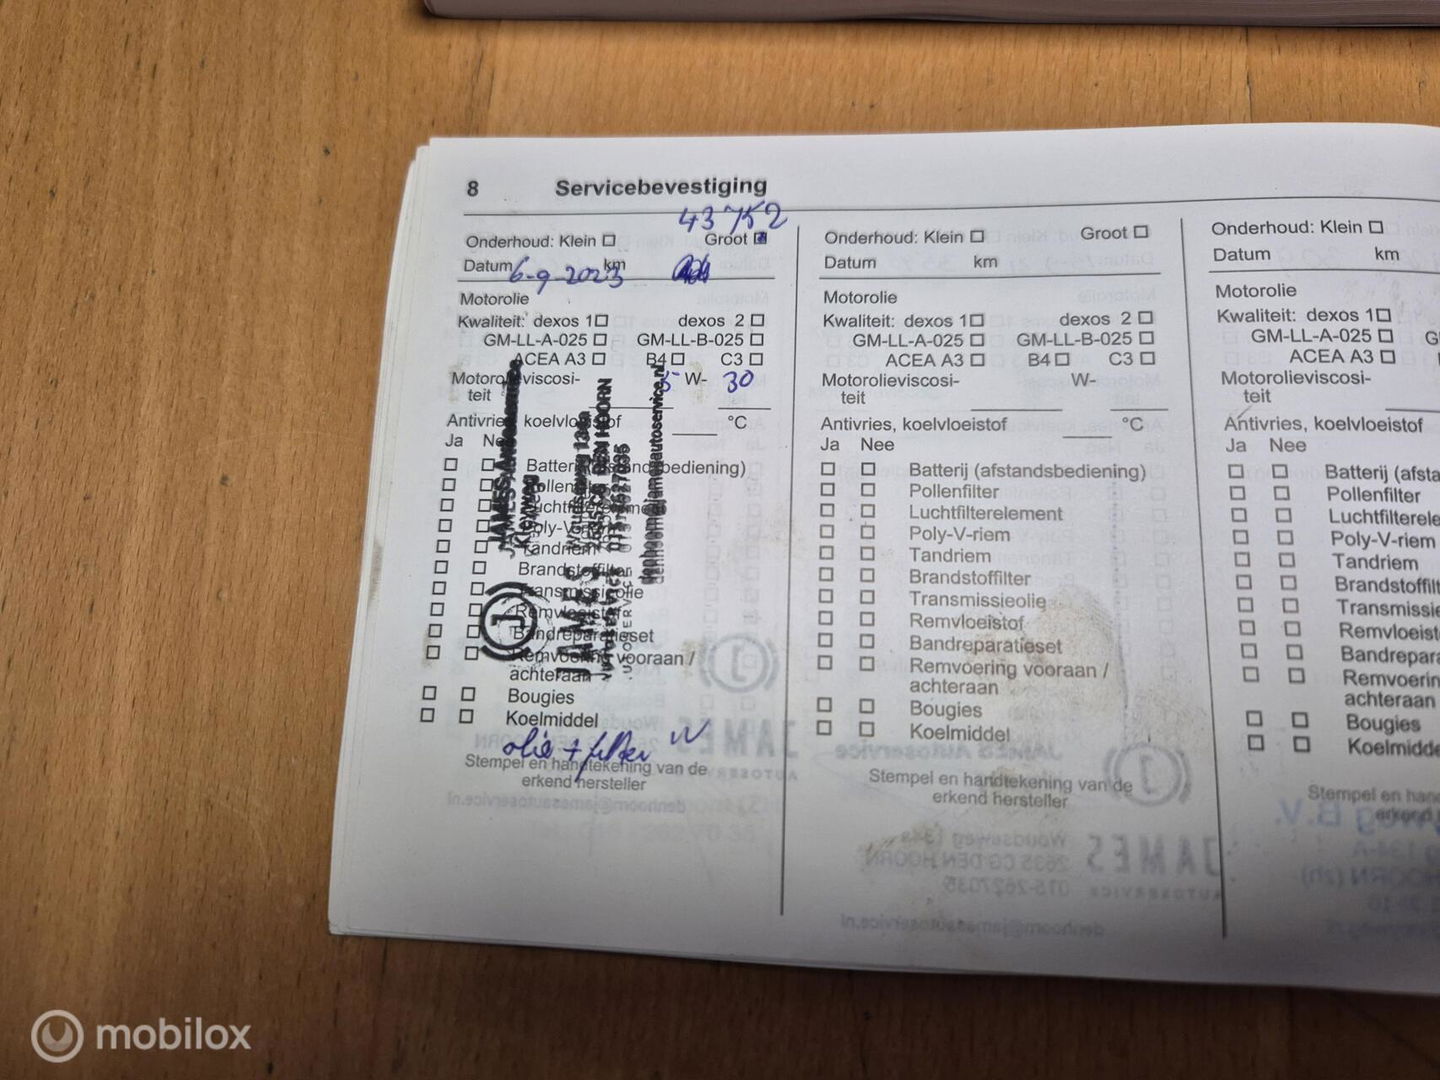 8 Servicebevestiging
43752
Onderhoud: Klein Groot
Datum 6-9-2023 km
Motorolie
Kwaliteit: dexos 1 dexos 2
GM-LL-A-025 GM-LL-B-025
ACEA A3 B4 C3
Motorolieviscosi-
teit 5 W- 30
Antivries, koelvloeistof °C
Ja Nee
Batterij (afstandsbediening)
Pollenfilter
Luchtfilterelement
Poly-V-riem
Tandriem
Brandstoffilter
Transmissieolie
Remvloeistof
Bandreparatieset
Remvoering vooraan /
achteraan
Bougies
Koelmiddel
olie + filter
Stempel en handtekening van de
erkend hersteller
JAMES
AUTOSERVICE
DEN HOORN
denhoorn@jamesautoservice.nl
Onderhoud: Klein Groot
Datum km
Motorolie
Kwaliteit: dexos 1 dexos 2
GM-LL-A-025 GM-LL-B-025
ACEA A3 B4 C3
Motorolieviscosi- W-
teit
Antivries, koelvloeistof °C
Ja Nee
Batterij (afstandsbediening)
Pollenfilter
Luchtfilterelement
Poly-V-riem
Tandriem
Brandstoffilter
Transmissieolie
Remvloeistof
Bandreparatieset
Remvoering vooraan /
achteraan
Bougies
Koelmiddel
Stempel en handtekening van de
erkend hersteller
Onderhoud: Klein
Datum km
Motorolie
Kwaliteit: dexos 1
GM-LL-A-025 G
ACEA A3
Motorolieviscosi-
teit
Antivries, koelvloeistof
Ja Nee
Batterij (afsta
Pollenfilter
Luchtfilterele
Poly-V-riem
Tandriem
Brandstoffilt
Transmissie
Remvloeist
Bandrepara
Remvoering
achteraan
Bougies
Koelmidde
Stempel en han
erkend
mobilox